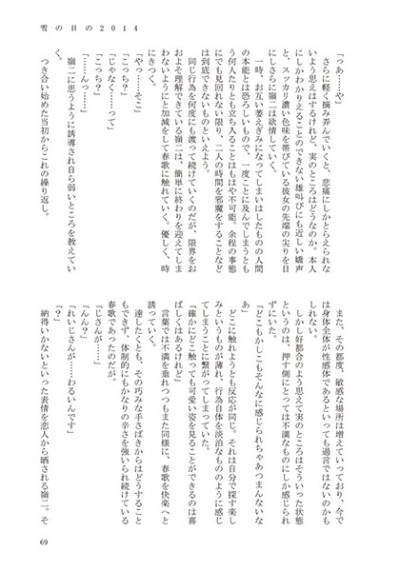 雪の日の2014
「つぁ……や」
さらに軽く摘み弄んでいくと、悲痛にしかとらえられな
いよう思えはするけれど、実のところはどうなのか。本人
にしかわかりえることのできない雄叫びにも近しい嬌声
と、スッカリ濃い色味を帯びている彼女の先端の尖りを目
にしさらに嶺二は欲情していく。
一時、お互い萎えぎみになってしまいはしたものの人間
の本能とは恐ろしいもので、一度ことに及んでしまうとも
う何人たりとも立ち入ることはもはや不可能。余程の事態
にでも見回れない限り、二人の時間を邪魔をすることなど
は到底できないものといえよう。
同じ行為を何度にも渡って続けていくのだが、限界をお
およそ理解できている嶺二は、簡単に終わりを迎えてしま
わないようにと加減をして春歌に触れていく。優しく、時
にきつく。
「やっ……そこ」
「こっち？」
「じゃなく……って」
「こっち？」
「……んっ……」
嶺二に思うように誘導され自ら弱いところを教えてい
く。
つき合い始めた当初からこれの繰り返し。
また、その都度、敏感な場所は増えていっており、今で
は身体全体が性感体であるといっても過言ではないのかも
しれない。
しかし好都合のよう思えて実のところはそういった状態
というのは、押す側にとっては不満なものにしか感じられ
ずにいた。
「どこもかしこもそんなに感じられちゃあつまんないな
あ」
どこに触れようとも反応が同じ。それは自分で探す楽し
みというものが薄れ、行為自体を淡泊なもののように感じ
てしまうことに繋がってしまっていた。
「確かにどこ触っても可愛い姿を見ることができるのは喜
ばしくはあるけれど」
言葉では不満を垂れつつもまた同様に、春歌を快楽へと
誘っていく。
達したくとも、その巧みな手さばきからはどうすること
もできず、体制的にもかなりの辛さを強いられ続けている
春歌であったのだが。
「じさんが……」
「んん？」
「れいじさんが……わるいんです」
「？」
納得いかないといった表情を恋人から晒される嶺二。そ
69